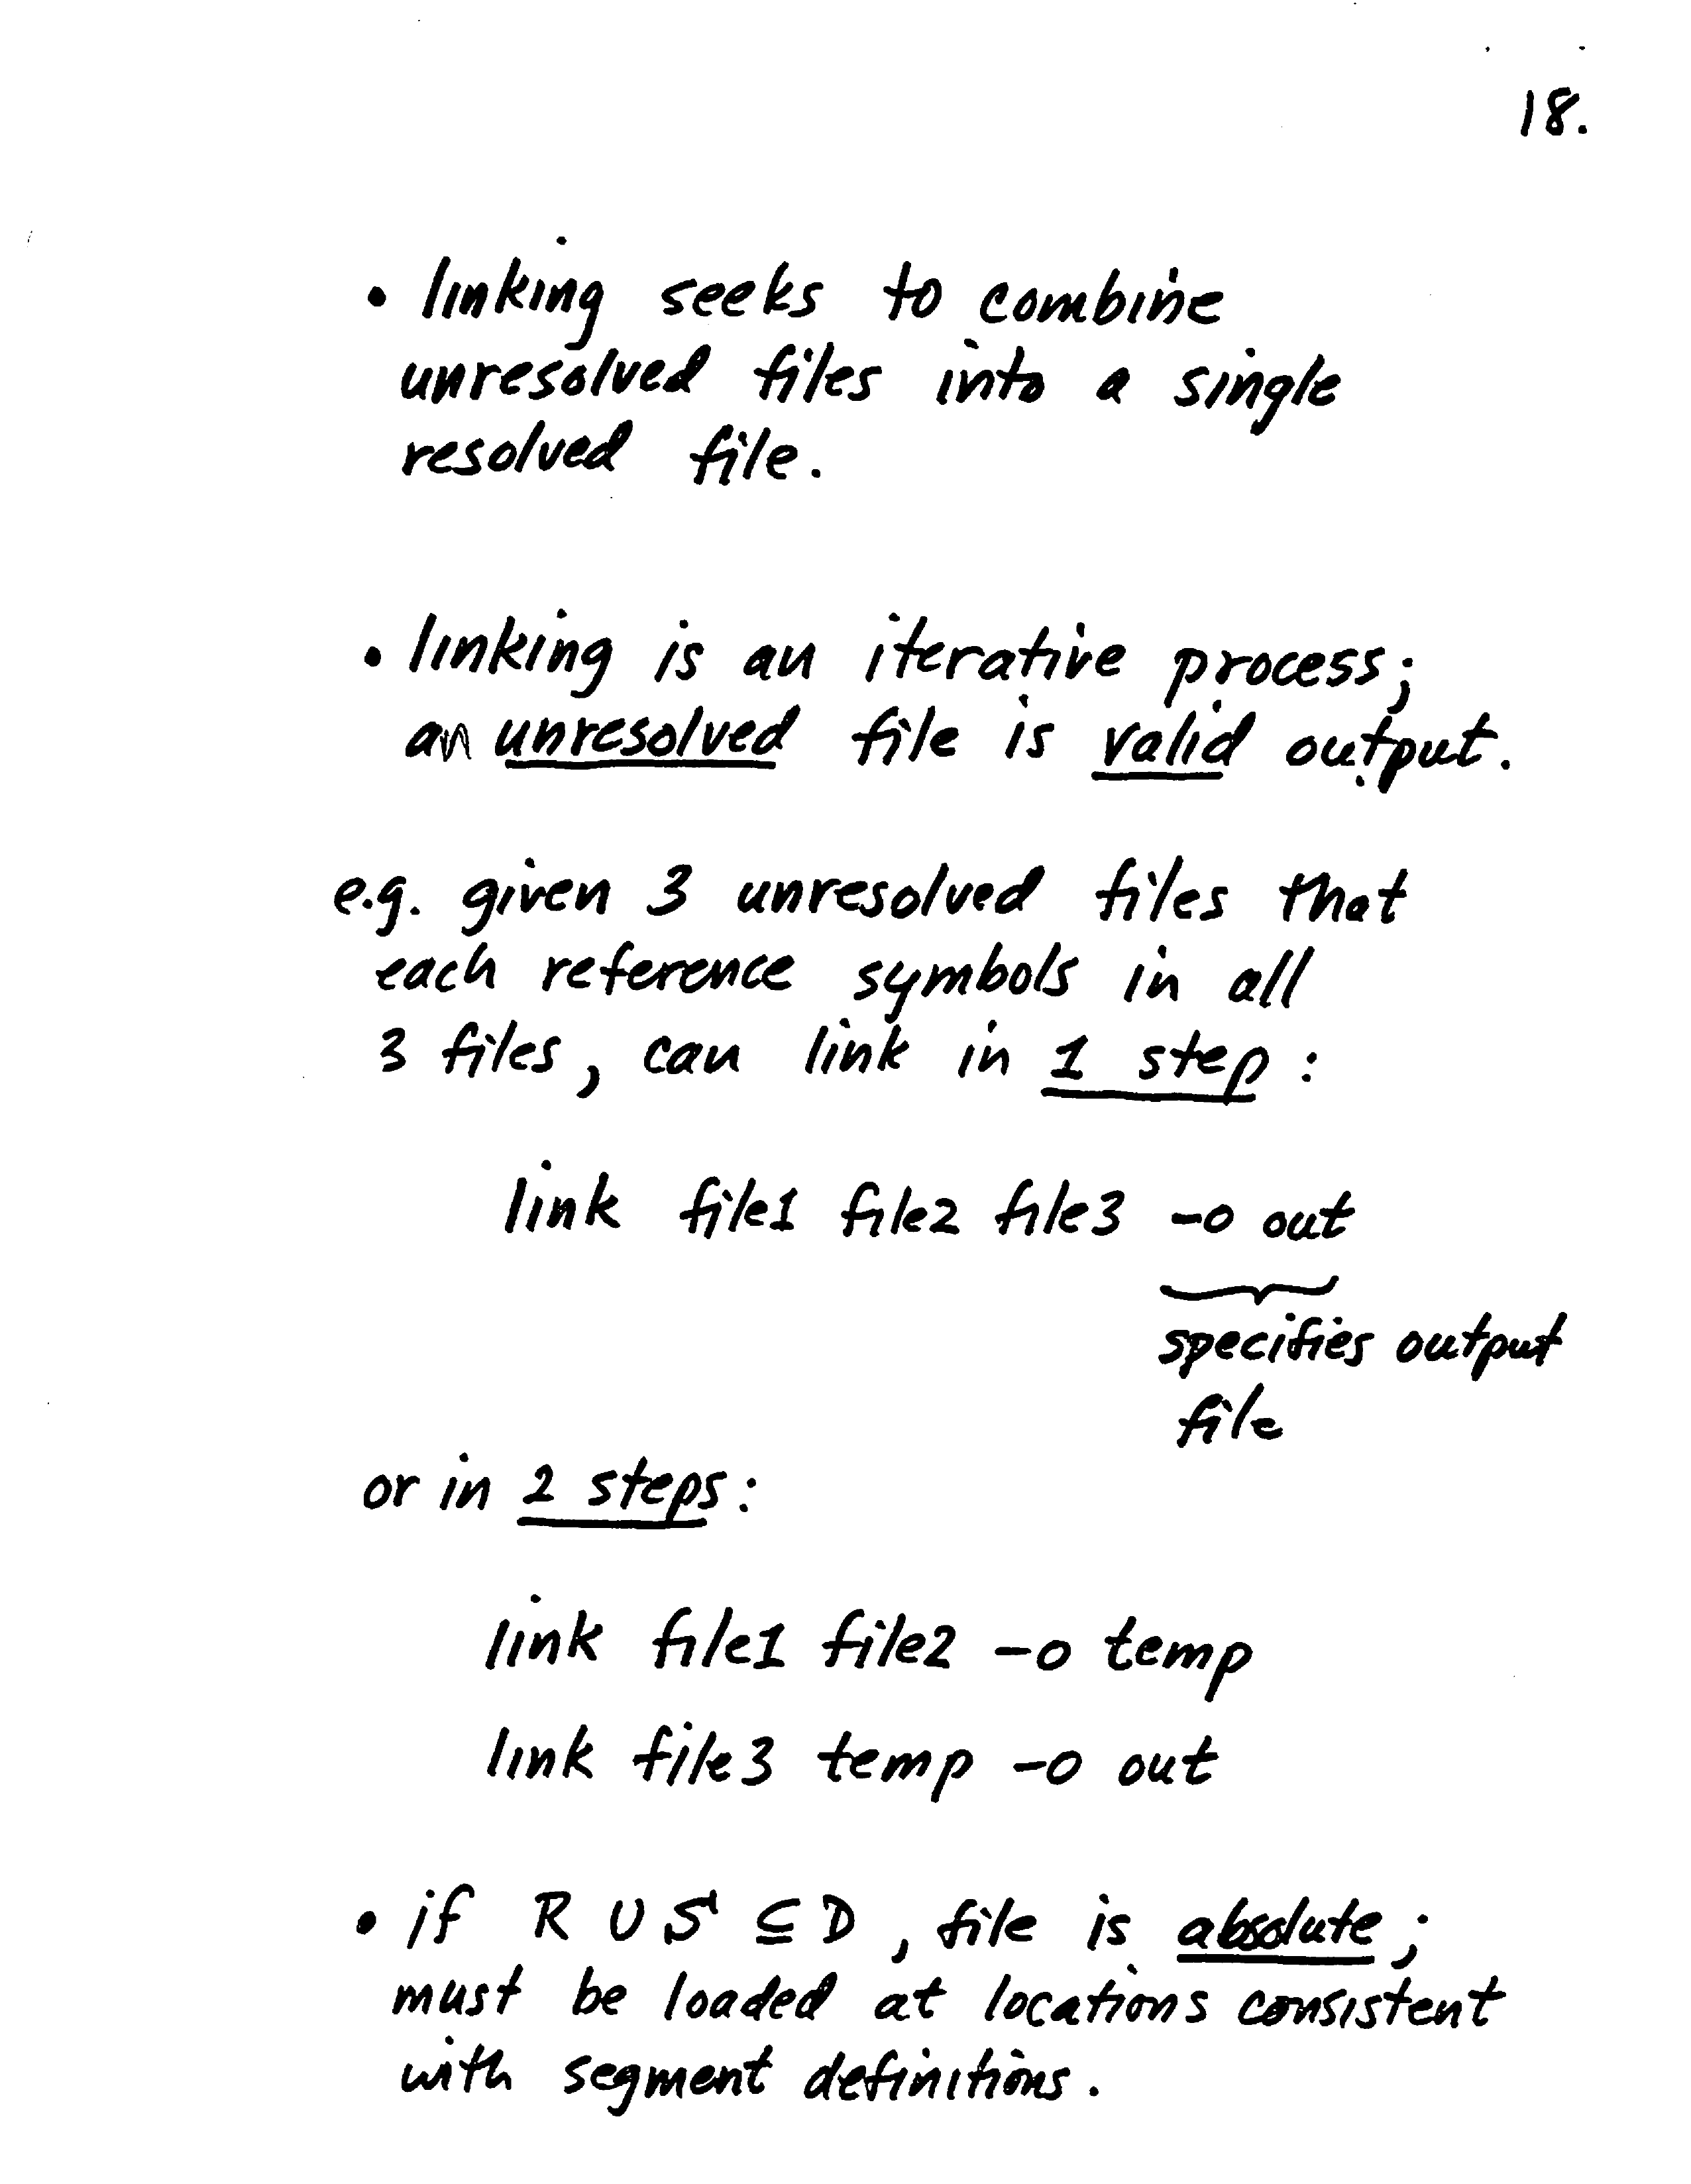 18.
• linking seeks to combine
unresolved files into a single
resolved file.
• linking is an iterative process;
an unresolved file is valid output.
e.g. given 3 unresolved files that
each reference symbols in all
3 files, can link in 1 step:
link file1 file2 file3 -o out
specifies output
file
or in 2 steps:
link file1 file2 -o temp
link file3 temp -o out
• if R ∪ S ⊆ D, file is absolute;
must be loaded at locations consistent
with segment definitions.